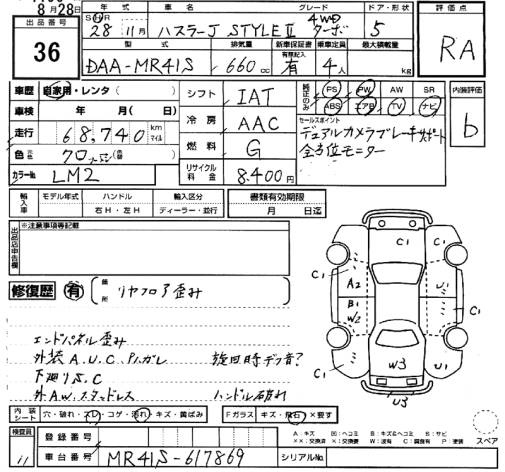 8月28日
年式 車名 グレード ドア・形状
出品番号
36
S・H 28年 11月 ハスラーJ STYLEⅡ 4WD ターボ 5
型式 排気量 新車保証書 有無記入 乗車定員 最大積載量
DAA-MR41S 660cc 有 4人 kg
評価点
RA
車歴 自家用・レンタ( )
車検 年 月( 日)
走行 68,740 km マイル
色 元色 クロ
カラーNo. LM2
シフト IAT
冷房 AAC
燃料 G
リサイクル料金 8,400円
純正のみ PS PW AW SR
ABS エアB TV ナビ
セールスポイント
デュアルカメラブレーキサポート
全方位モニター
内装評価
b
輸入車 モデル年式 ハンドル 輸入区分
年 右H・左H ディーラー・並行
書類有効期限
月 日迄
出品店申告欄
※注意事項等記載
修復歴 有 箇所 リヤフロア歪み
エンドパネル歪み
外装A.U.C.ハガレ 旋回時デフ音?
下廻りS.C
外AW.スタッドレス ハンドル破れ
C1 C1 C1
A2 U1
B1 W2
C1
C1 W3 U1
U3
内装シート 穴・破れ・スレ・コゲ・汚れ・キズ・黄ばみ
Fガラス キズ・飛石 ×要す
検査員
登録番号
車台番号 MR41S-617869 シリアルNo.
A:キズ U:ヘコミ B:キズ&ヘコミ S:サビ
××:交換済 X:交換要 W:波有 C:腐食有 P:塗装
スペア